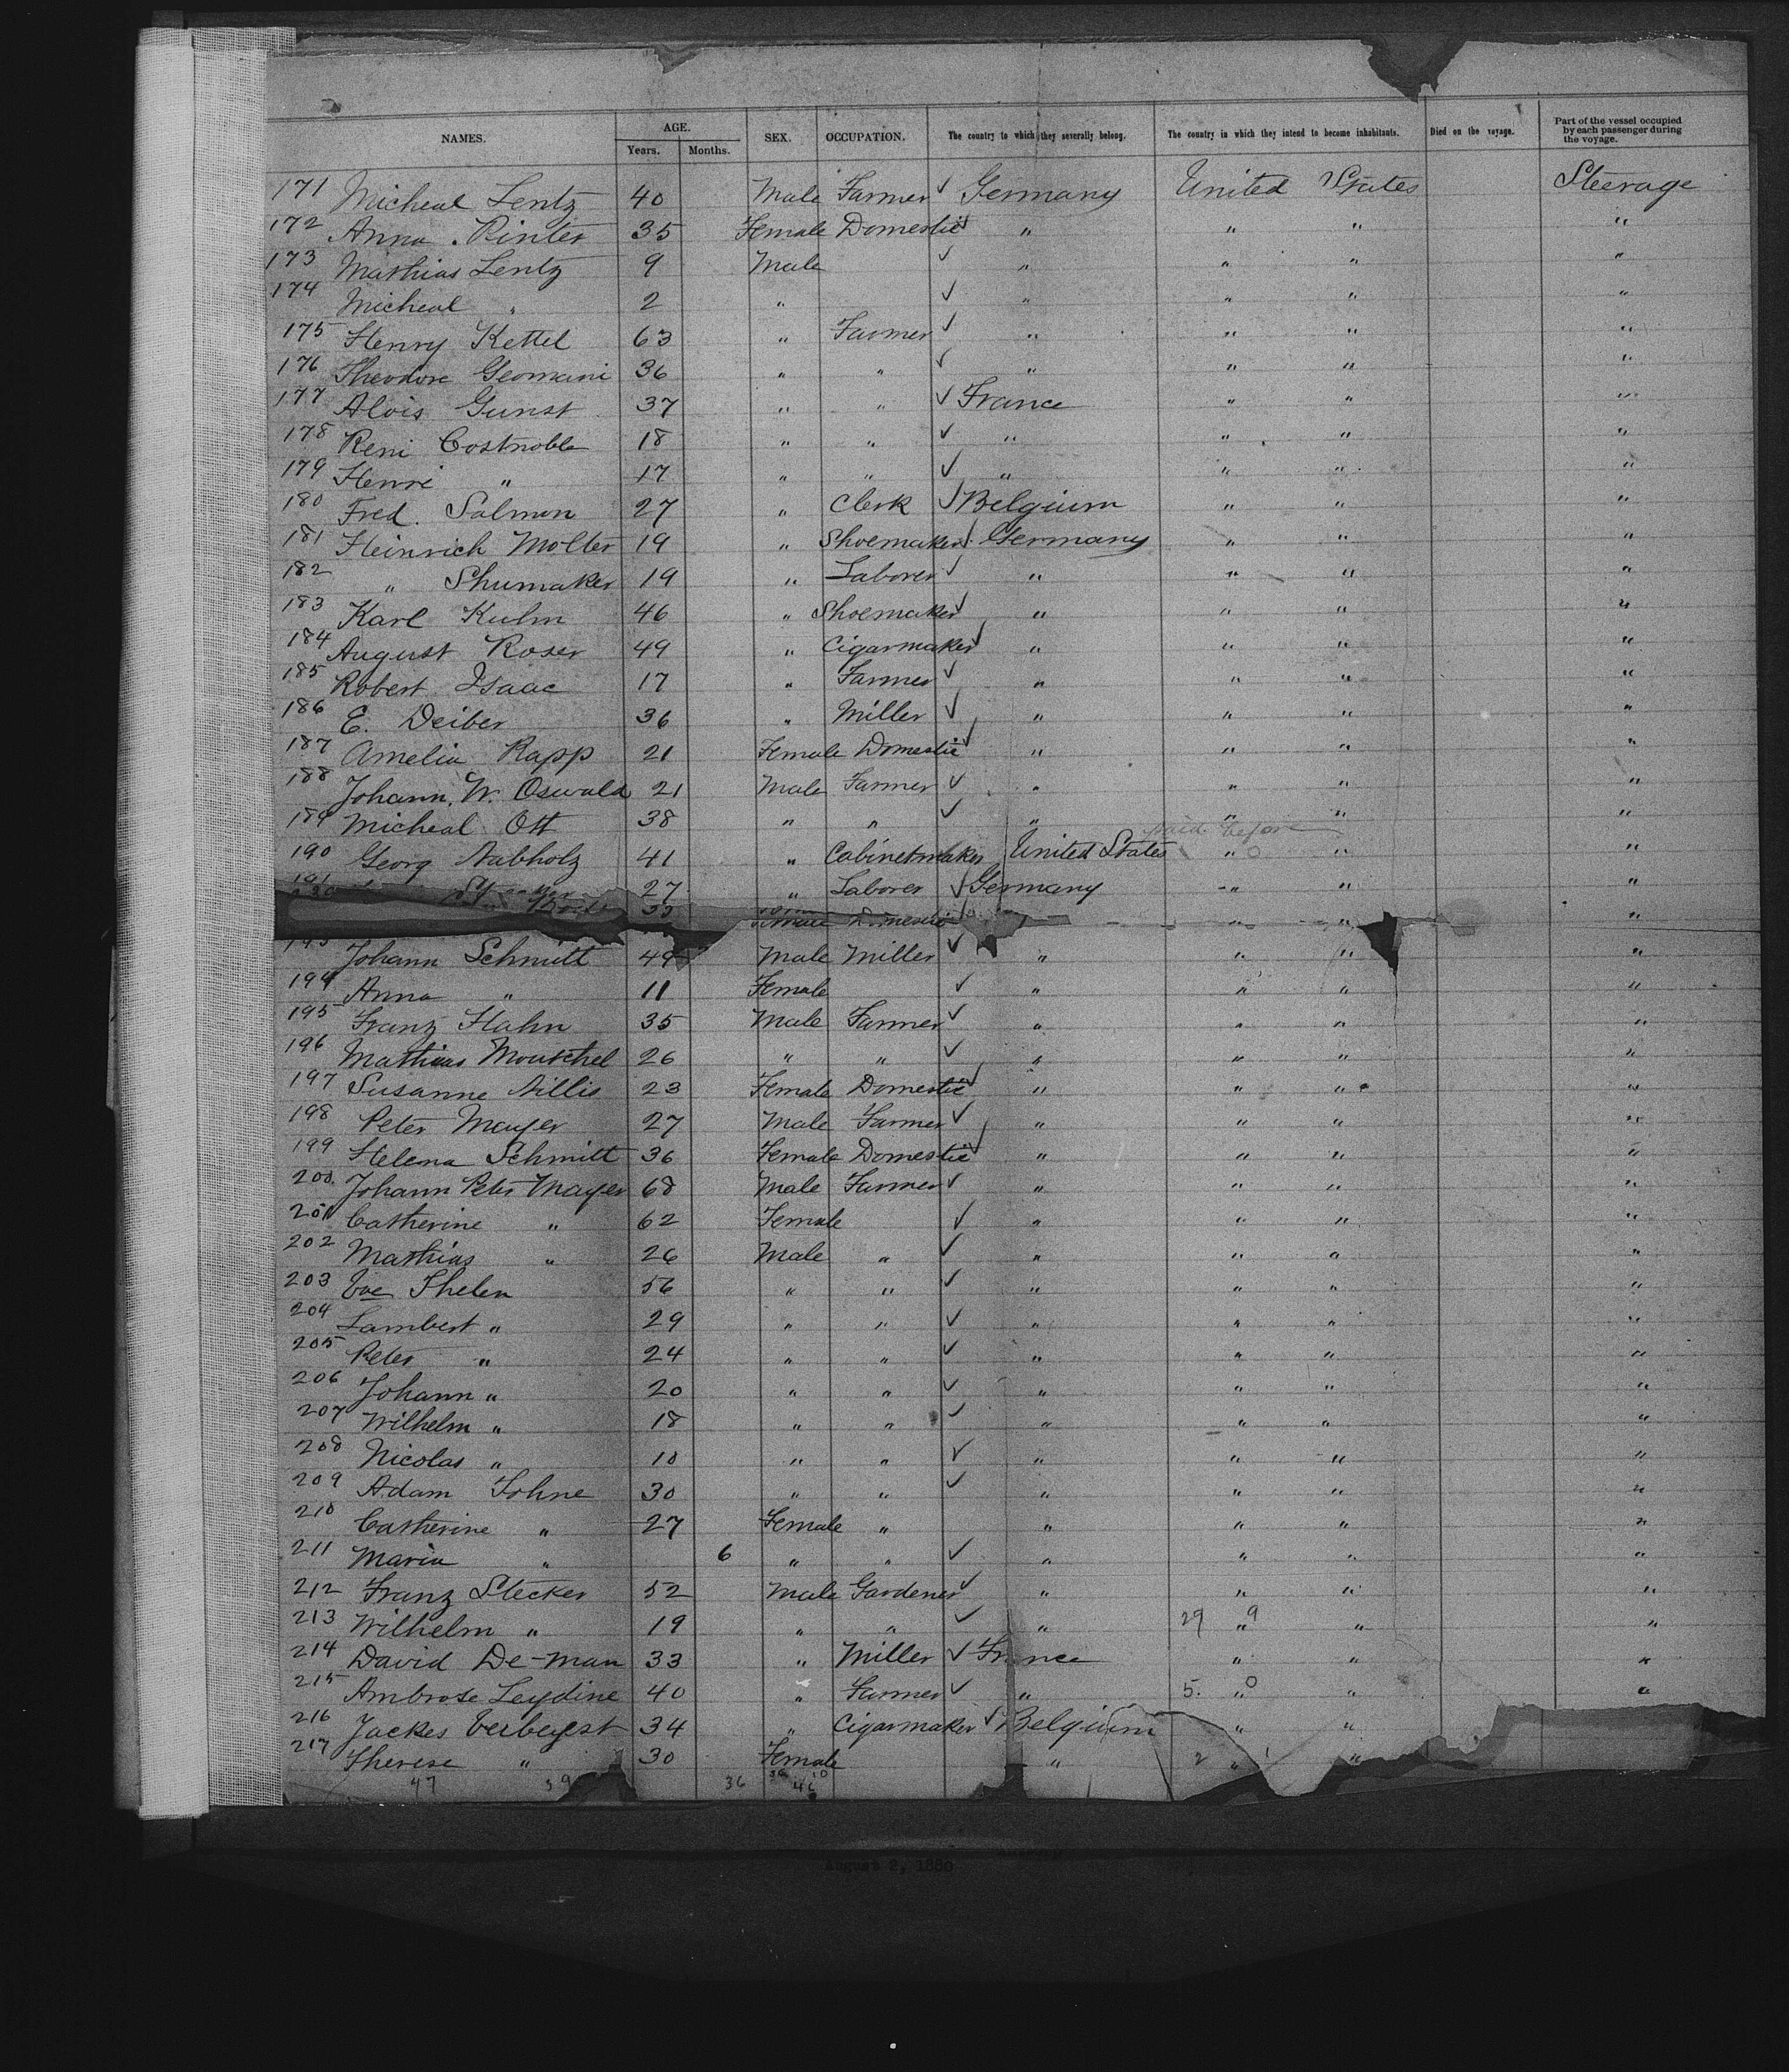 NAMES. AGE. SEX. OCCUPATION. The country to which they severally belong. The country in which they intend to become inhabitants. Died on the voyage. Part of the vessel occupied by each passenger during the voyage.
Years. Months.
171 Micheal Lentz 40 Male Farmer ✓ Germany United States Steerage
172 Anna Rinter 35 Female Domestic ✓ " " " "
173 Mathias Lentz 9 Male ✓ " " " "
174 Micheal " 2 " ✓ " " " "
175 Henry Kettel 63 " Farmer ✓ " " " "
176 Theodore Geomani 36 " " ✓ " " " "
177 Alois Gunst 37 " " ✓ France " " "
178 Reni Costnoble 18 " " ✓ " " " "
179 Henri " 17 " " ✓ " " " "
180 Fred. Salmon 27 " Clerk ✓ Belgium " " "
181 Heinrich Molter 19 " Shoemaker ✓ Germany " " "
182 " Shumaker 19 " Laborer ✓ " " " "
183 Karl Kuhn 46 " Shoemaker ✓ " " " "
184 August Roser 49 " Cigarmaker ✓ " " " "
185 Robert Isaac 17 " Farmer ✓ " " " "
186 E. Deiber 36 " Miller ✓ " " " "
187 Amelia Rapp 21 Female Domestic ✓ " " " "
188 Johann. W. Oswald 21 Male Farmer ✓ " " " "
189 Micheal Ott 38 " " ✓ " " " "
paid before
190 Georg Nabholz 41 " Cabinetmaker United States " 0 " "
191 27 " Laborer ✓ Germany " " "
Female Domestic ✓ " " "
193 Johann Schmitt 49 Male Miller ✓ " " " "
194 Anna " 11 Female ✓ " " " "
195 Franz Hahn 35 Male Farmer ✓ " " " "
196 Mathias Moutschel 26 " " ✓ " " " "
197 Susanne Nillis 23 Female Domestic ✓ " " " "
198 Peter Mayer 27 Male Farmer ✓ " " " "
199 Helena Schmitt 36 Female Domestic ✓ " " " "
200. Johann Peter Mayer 68 Male Farmer ✓ " " " "
201 Catherine " 62 Female ✓ " " " "
202 Mathias " 26 Male " ✓ " " " "
203 Eva Thelen 56 " " ✓ " " " "
204 Lambert " 29 " " ✓ " " " "
205 Peter " 24 " " ✓ " " " "
206 Johann " 20 " " ✓ " " " "
207 Wilhelm " 18 " " ✓ " " " "
208 Nicolas " 10 " " ✓ " " " "
209 Adam Johne 30 " " ✓ " " " "
210 Catherine " 27 Female " " " " "
211 Maria " 6 " " ✓ " " " "
212 Franz Stecker 52 Male Gardener ✓ " " " "
213 Wilhelm " 19 " " ✓ " 29 " 9 " "
214 David De-man 33 " Miller ✓ France " " "
215 Ambrose Leydine 40 " Farmer ✓ " 5. " 0 " "
216 Jackes Verbeyst 34 " Cigarmaker ✓ Belgium " "
217 Therese " 30 Female " 2 " 1 "
47 39 36 36 10
46
August 2, 1880